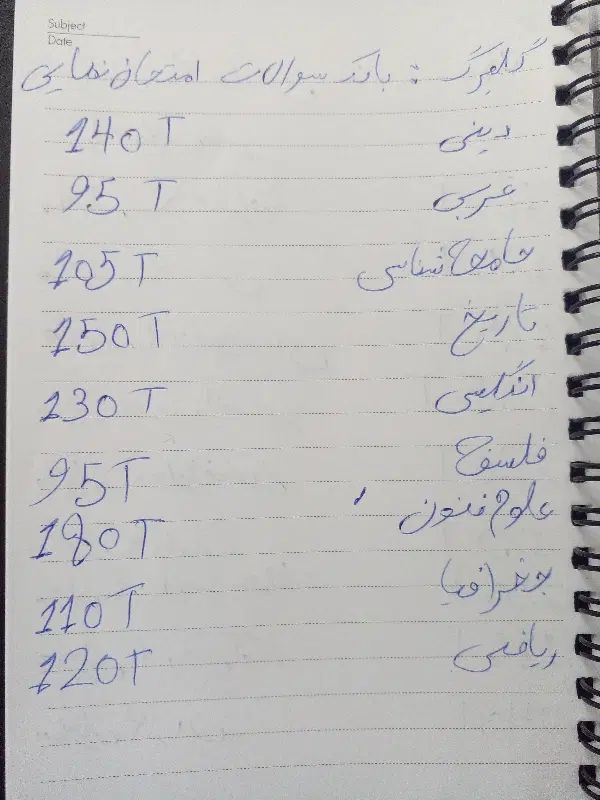 Subject
Date
گلبرگ : بانک سوالات امتحان نهایی
دینی 140 T
عربی 95 T
جامعه شناسی 105 T
تاریخ 150 T
انگلیسی 130 T
فلسفه 95 T
علوم فنون 180 T
جغرافیا 110 T
ریاضی 120 T